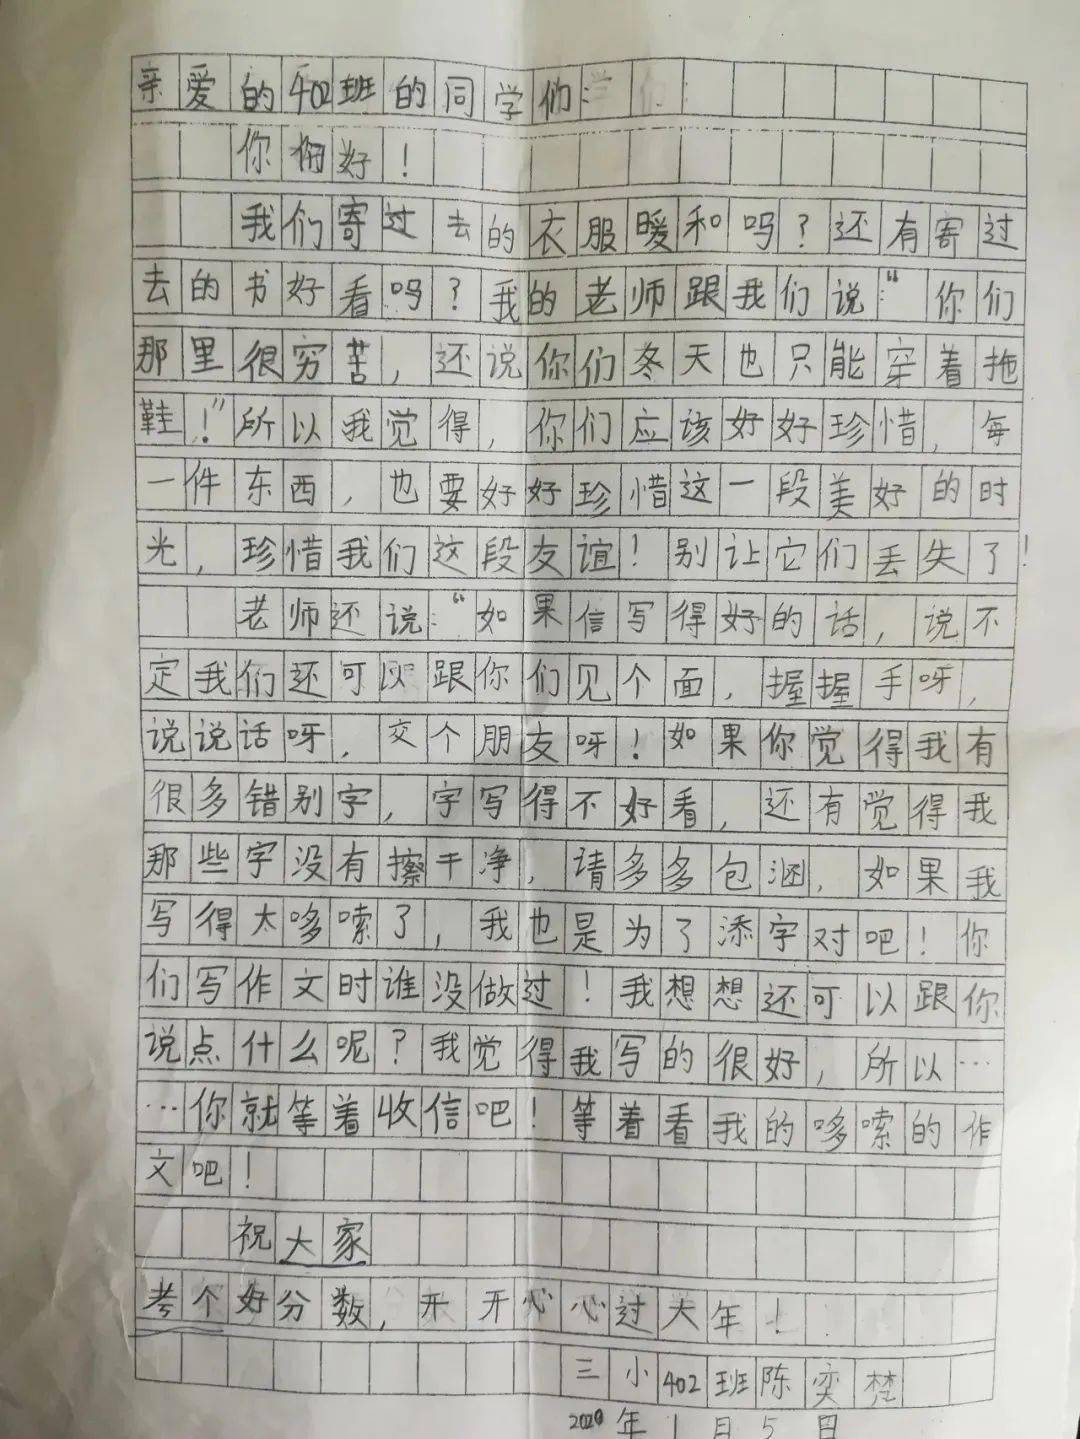 亲爱的402班的同学们:
你们好!
我们寄过去的衣服暖和吗?还有寄过
去的书好看吗?我的老师跟我们说:“你们
那里很穷苦,还说你们冬天也只能穿着拖
鞋!”所以我觉得,你们应该好好珍惜,每
一件东西,也要好好珍惜这一段美好的时
光,珍惜我们这段友谊!别让它们丢失了!
老师还说:“如果信写得好的话,说不
定我们还可以跟你们见个面,握握手呀,
说说话呀,交个朋友呀!如果你觉得我有
很多错别字,字写得不好看,还有觉得我
那些字没有擦干净,请多多包涵,如果我
写得太哆嗦了,我也是为了添字对吧!你
们写作文时谁没做过!我想想还可以跟你
说点什么呢?我觉得我写的很好,所以…
…你就等着收信吧!等着看我的哆嗦的作
文吧!
祝大家
考个好分数,开开心心过大年!
三小402班陈奕梵
2020年1月5日